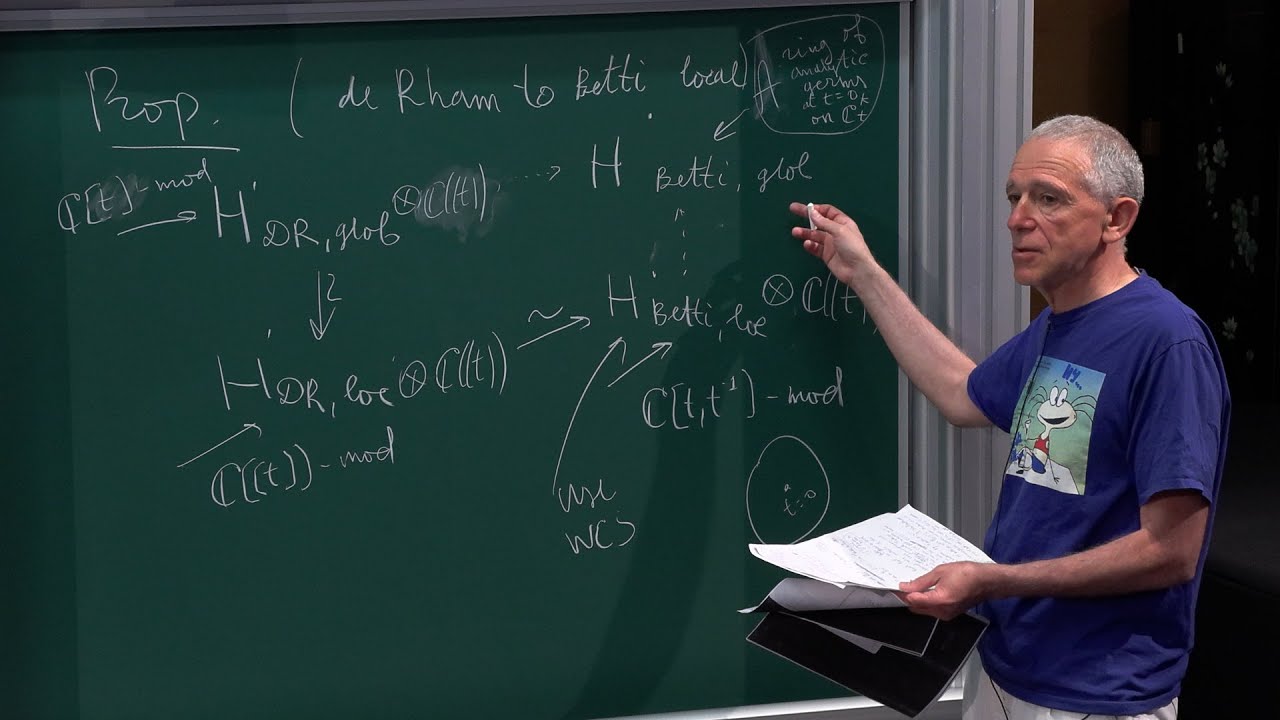 Prop. ( de Rham to Betti local)
A ring of
analytic
germs
at t=0
on ℂt
ℂ[t]-mod
H˙ DR, glob ⊗ ℂ((t)) ⋯> H Betti, glob
↓≀
H˙ DR, loc ⊗ ℂ((t)) ~→ H Betti, loc ⊗ ℂ((t
ℂ[[t]]-mod
ℂ[t,t⁻¹]-mod
t=0
use
WCS